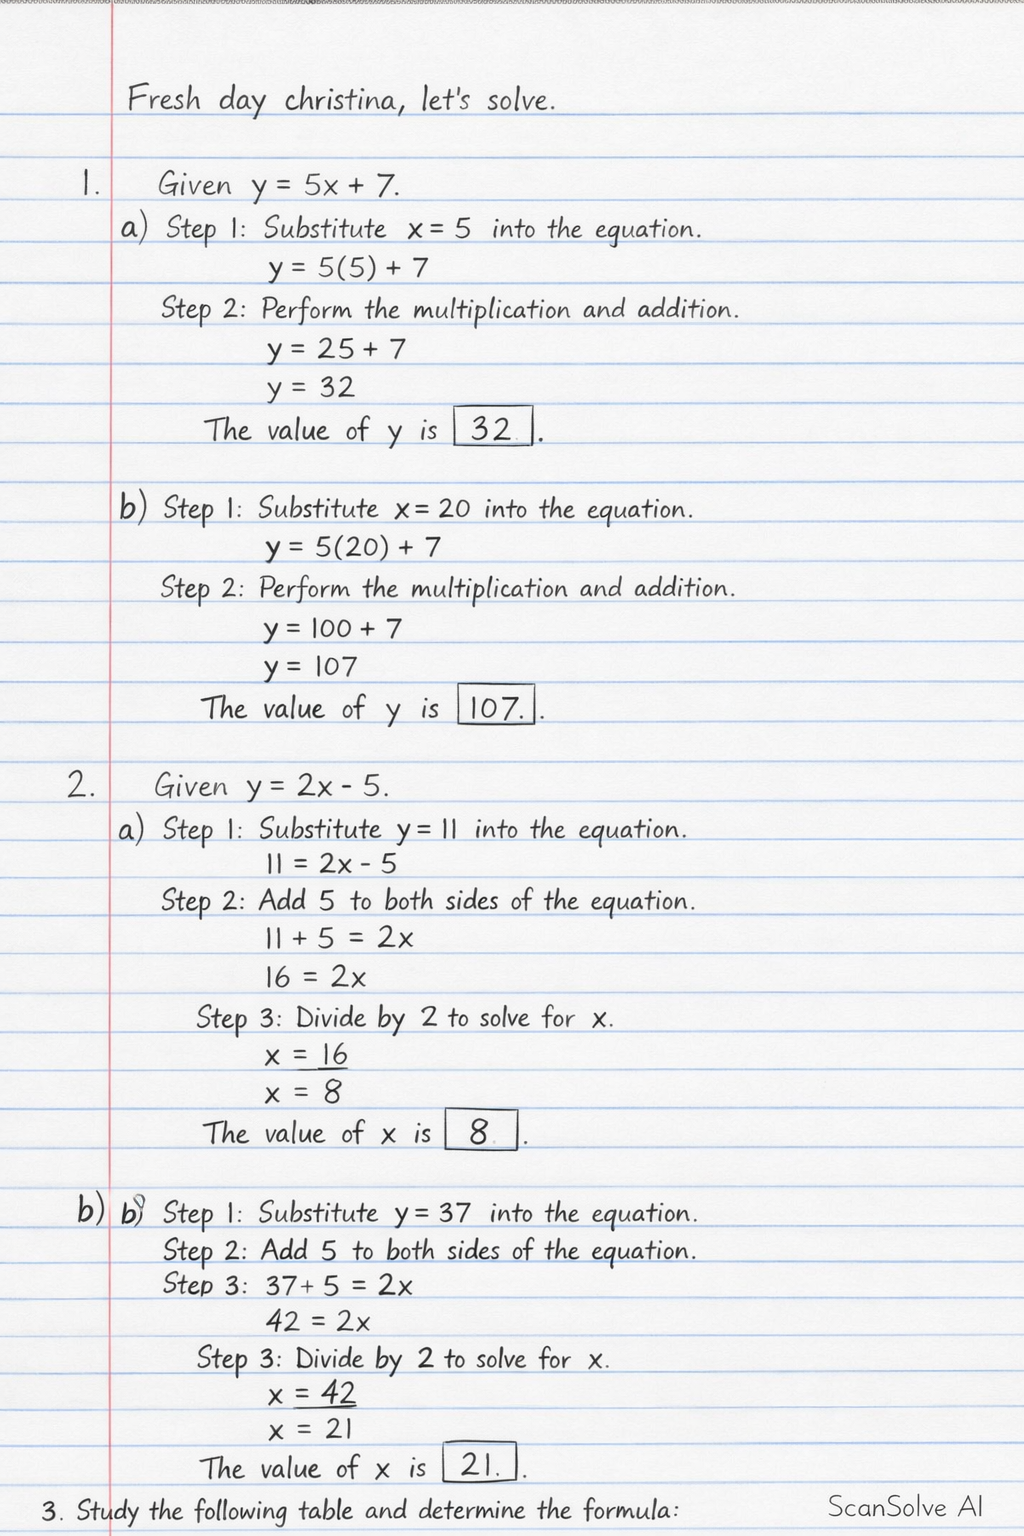 Fresh day christina, let's solve.
1. Given y = 5x + 7.
a) Step 1: Substitute x = 5 into the equation.
y = 5(5) + 7
Step 2: Perform the multiplication and addition.
y = 25 + 7
y = 32
The value of y is 32.
b) Step 1: Substitute x = 20 into the equation.
y = 5(20) + 7
Step 2: Perform the multiplication and addition.
y = 100 + 7
y = 107
The value of y is 107..
2. Given y = 2x - 5.
a) Step 1: Substitute y = 11 into the equation.
11 = 2x - 5
Step 2: Add 5 to both sides of the equation.
11 + 5 = 2x
16 = 2x
Step 3: Divide by 2 to solve for x.
x = 16
x = 8
The value of x is 8.
b) b) Step 1: Substitute y = 37 into the equation.
Step 2: Add 5 to both sides of the equation.
Step 3: 37 + 5 = 2x
42 = 2x
Step 3: Divide by 2 to solve for x.
x = 42
x = 21
The value of x is 21..
3. Study the following table and determine the formula:
ScanSolve AI